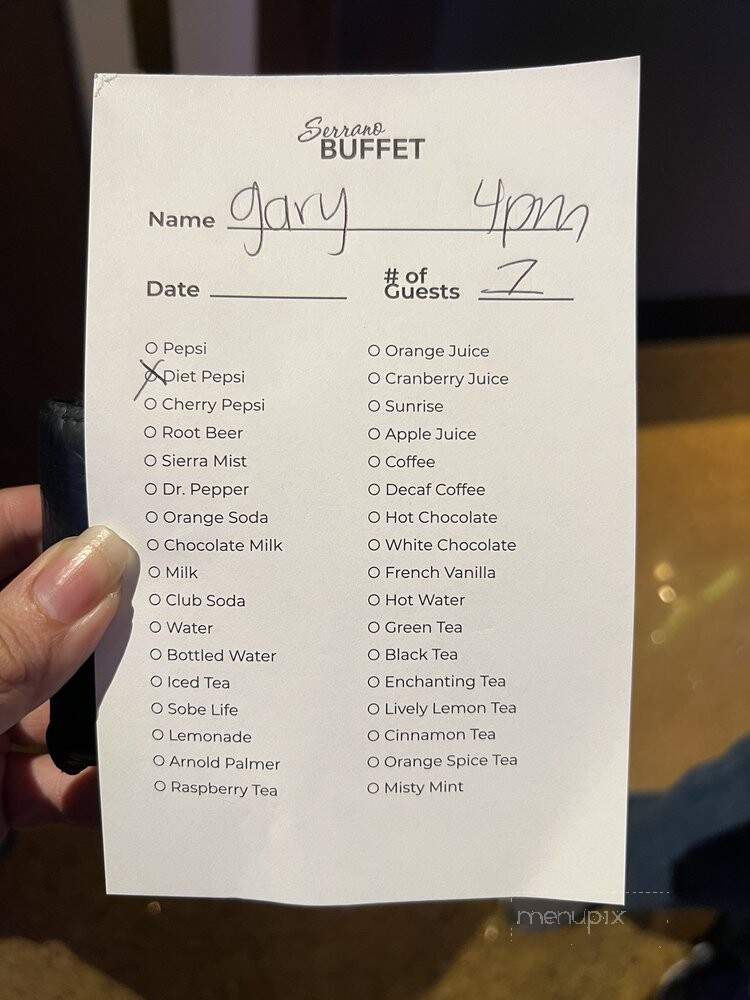 Serrano
BUFFET
Name gary 4pm
Date # of Guests 1
Pepsi
Diet Pepsi
Cherry Pepsi
Root Beer
Sierra Mist
Dr. Pepper
Orange Soda
Chocolate Milk
Milk
Club Soda
Water
Bottled Water
Iced Tea
Sobe Life
Lemonade
Arnold Palmer
Raspberry Tea
Orange Juice
Cranberry Juice
Sunrise
Apple Juice
Coffee
Decaf Coffee
Hot Chocolate
White Chocolate
French Vanilla
Hot Water
Green Tea
Black Tea
Enchanting Tea
Lively Lemon Tea
Cinnamon Tea
Orange Spice Tea
Misty Mint
menupix